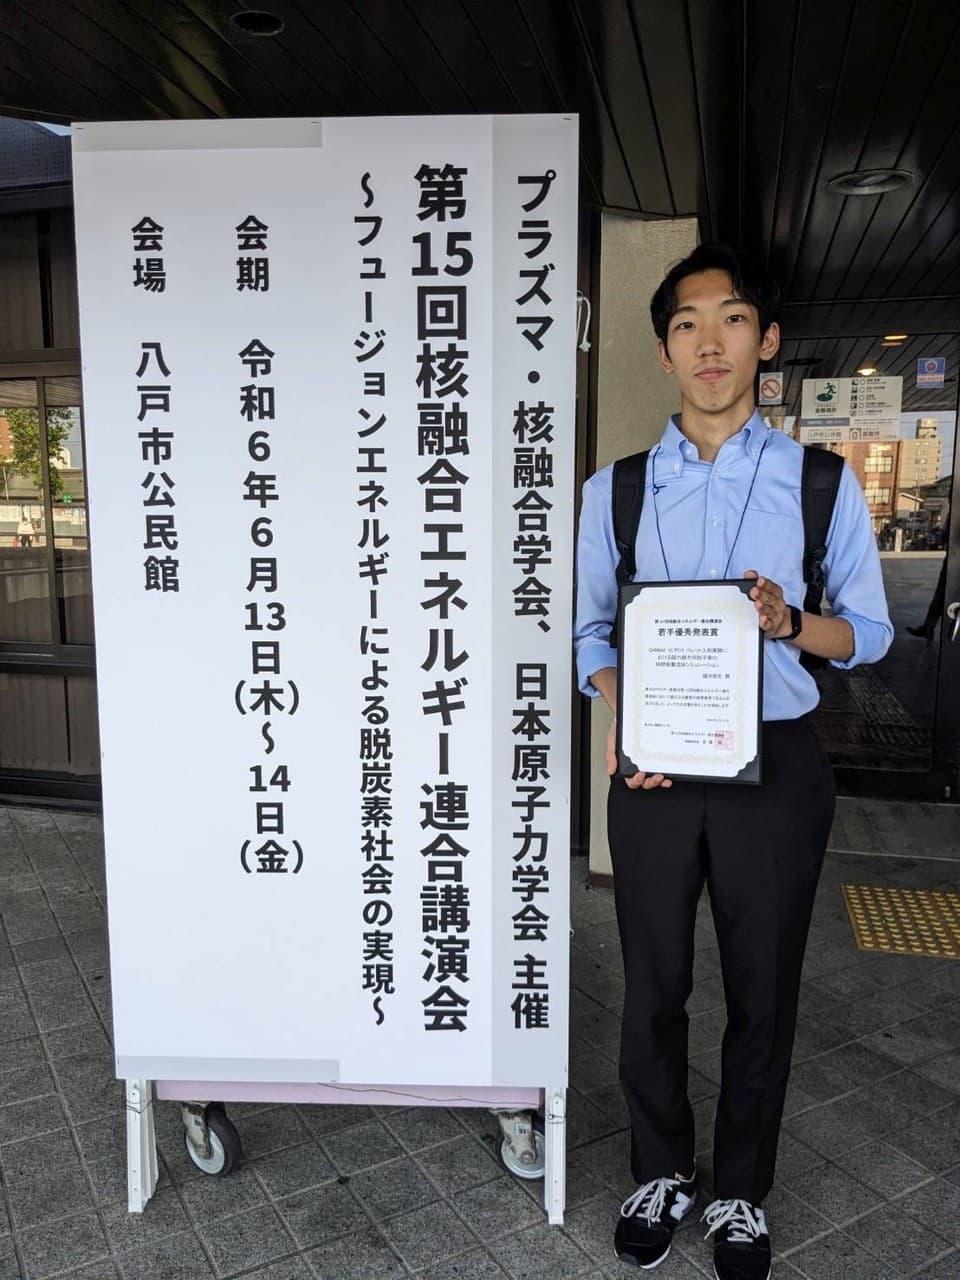 プラズマ・核融合学会、日本原子力学会 主催
第15回核融合エネルギー連合講演会
～フュージョンエネルギーによる脱炭素社会の実現～
会期 令和6年6月13日(木)～14日(金)
会場 八戸市公民館
第15回核融合エネルギー連合講演会
若手優秀発表賞